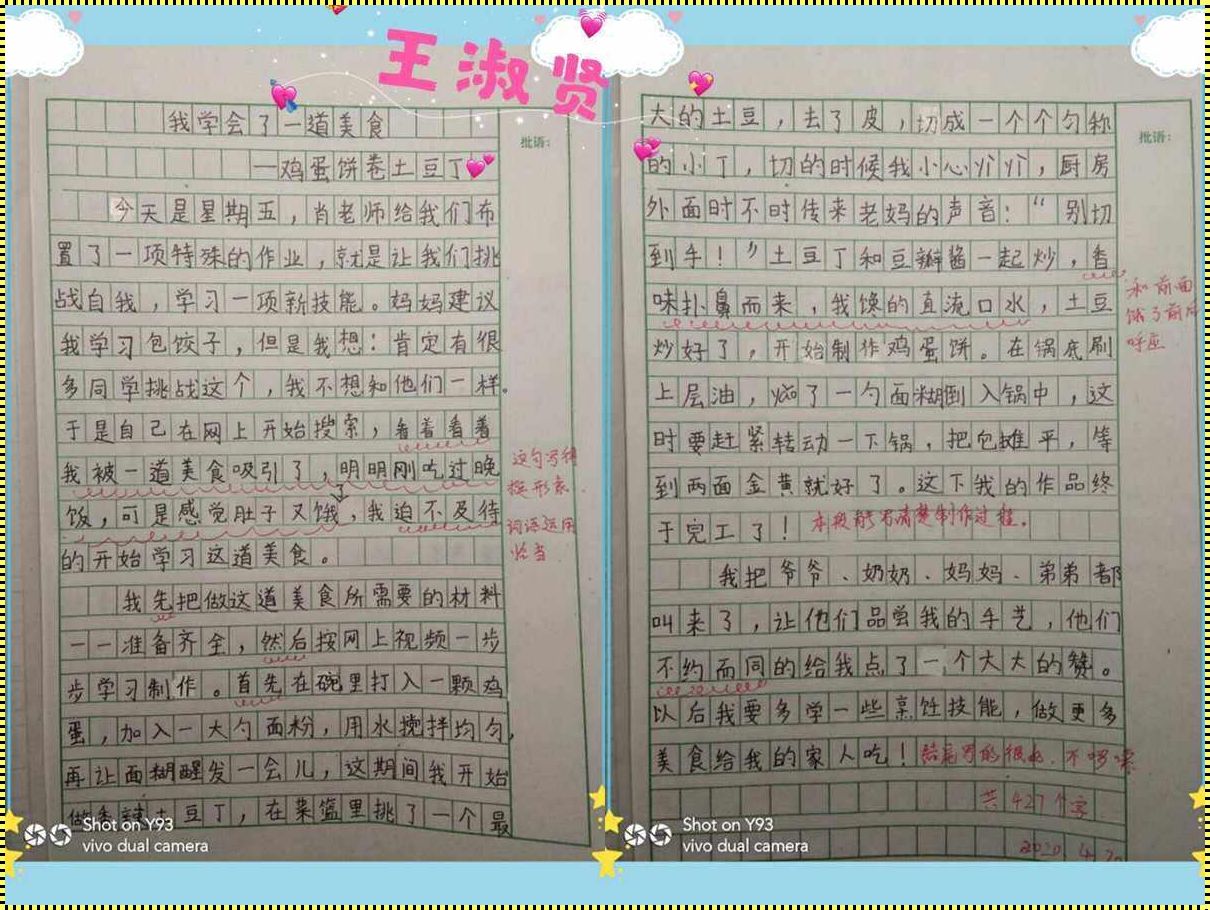 王淑贤
我学会了一道美食
批语：
—鸡蛋饼卷土豆丁
今天是星期五，肖老师给我们布
置了一项特殊的作业，就是让我们挑
战自我，学习一项新技能。妈妈建议
我学习包饺子，但是我想：肯定有很
多同学挑战这个，我不想和他们一样。
于是自己在网上开始搜索，看着看着
我被一道美食吸引了，明明刚吃过晚
饭，可是感觉肚子又饿，我迫不及待
的开始学习这道美食。
这句写得
挺形象．
词语运用
恰当
我先把做这道美食所需要的材料
一一准备齐全，然后按网上视频一步
步学习制作。首先在碗里打入一颗鸡
蛋，加入一大勺面粉，用水搅拌均匀，
再让面糊醒发一会儿，这期间我开始
做香辣土豆丁，在菜篮里挑了一个最
Shot on Y93
vivo dual camera
大的土豆，去了皮，切成一个个匀称
批语：
的小丁，切的时候我小心翼翼，厨房
外面时不时传来老妈的声音：“别切
到手！”土豆丁和豆瓣酱一起炒，香
味扑鼻而来，我馋的直流口水，土豆
炒好了，开始制作鸡蛋饼。在锅底刷
和前面
饿了前后
呼应
上层油，㧟了一勺面糊倒入锅中，这
时要赶紧转动一下锅，把它摊平，等
到两面金黄就好了。这下我的作品终
于完工了！
本段能写清楚制作过程。
我把爷爷、奶奶、妈妈、弟弟都
叫来了，让他们品尝我的手艺，他们
不约而同的给我点了一个大大的赞。
以后我要多学一些烹饪技能，做更多
美食给我的家人吃！
结尾写的很好．不啰嗦
共427个字
2020．4．20
Shot on Y93
vivo dual camera